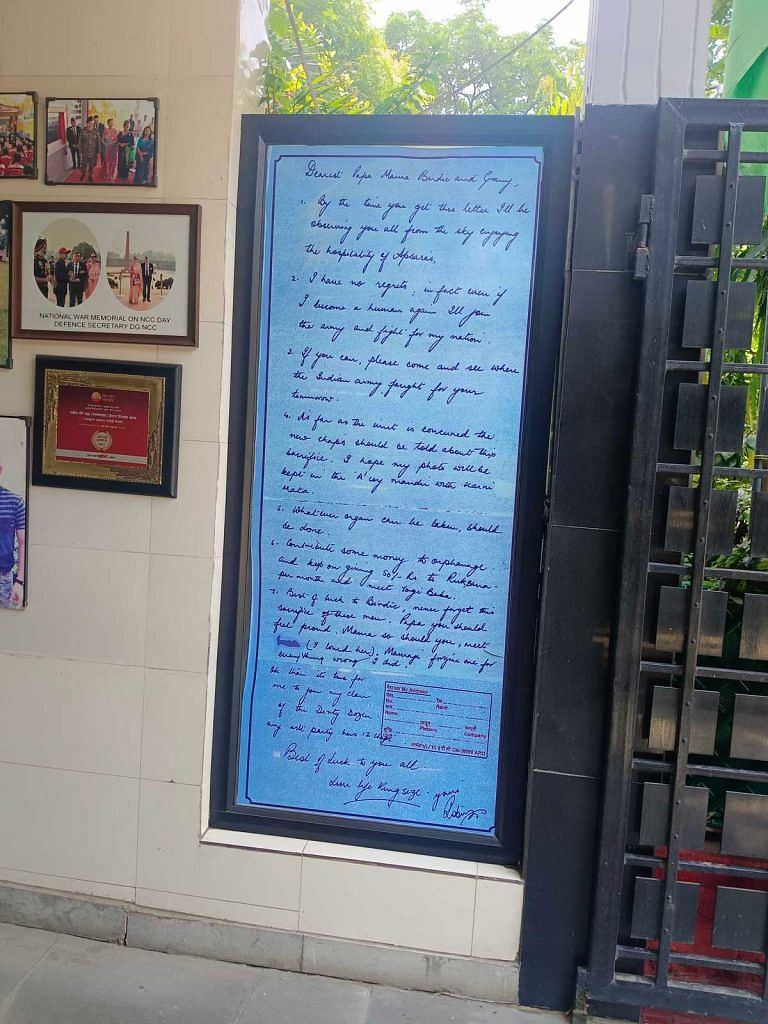 Dearest Papa Mama Birdie and Granny,
1. By the time you get this letter I'll be
observing you all from the sky enjoying
the hospitality of Apsaras.
2. I have no regrets; in fact even if
I become a human again I'll join
the army and fight for my nation.
3. If you can, please come and see where
the Indian army fought for your
tomorrow.
4. As far as the unit is concerned the
new chaps should be told about this
sacrifice. I hope my photo will be
kept in the 'A' coy mandir with Karni
Mata.
5. Whatever organ can be taken, should
be done.
6. Contribute some money to orphanage
and keep on giving 50/- Rs to Rukhsana
per month and meet Yogi Baba.
7. Best of luck to Birdie, never forget this
sacrifice of these men. Papa you should
feel proud. Mama so should you, meet
(I loved her). Mamaji forgive me for
everything wrong I did.
Ok then its time for
me to join my clan
of the Dirty Dozen
my aslt party has 12 chaps.
My Address
No.
Rank
Name
Platoon
Company
APO
Best of luck to you all
Live life Kingsize.
yours
Robin
NATIONAL WAR MEMORIAL ON NCC DAY
DEFENCE SECRETARY DG NCC